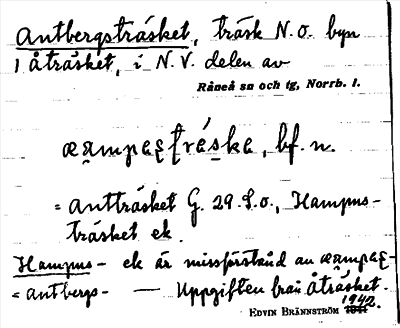 Antbergsträsket, träsk N.O. byn
Åträsket, i N.V. delen av
Råneå sn och tg, Norrb. l.
bf. n.
= Antträsket G. 29. S.O., Hampus-
träsket ek.
Hampus- ek är missförstånd av
= Antbergs- — Uppgiften från Åträsket.
1942.
EDVIN BRÄNNSTRÖM 1941.